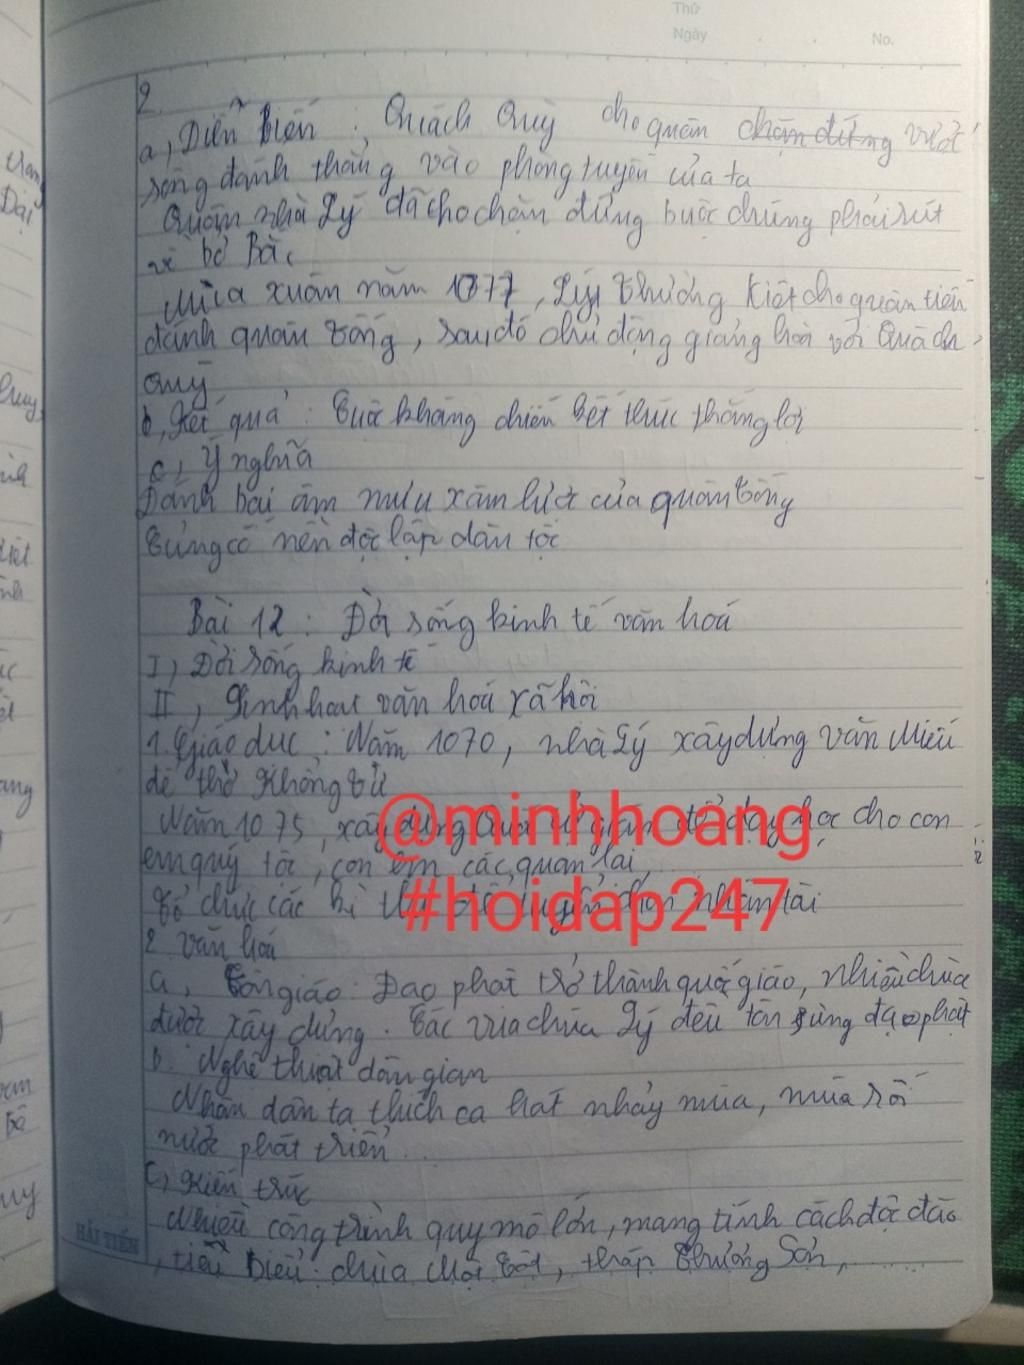 Thứ
Ngày . . No.
2.
a, Diễn biến : Quách Quỳ cho quân chặn đứng vượt
sông đánh thẳng vào phòng tuyến của ta
Quân nhà Lý đã cho chặn đứng buộc chúng phải rút
về bờ Bắc
Mùa xuân năm 1077, Lý Thường Kiệt cho quân tiến
đánh quân Tống, sau đó chủ động giảng hoà với Quách
Quỳ
b, Kết quả : Cuộc kháng chiến kết thúc thắng lợi
c, Ý nghĩa
Đánh bại âm mưu xâm lược của quân Tống
Củng cố nền độc lập dân tộc
Bài 12 : Đời sống kinh tế văn hoá
I, Đời sống kinh tế
II, Sinh hoạt văn hoá xã hội
1. Giáo dục : Năm 1070, nhà Lý xây dựng văn Miếu
để thờ Khổng Tử
Năm 1075, xây dựng Quốc tử giám để dạy học cho con
em quý tộc, con em các quan lại
@minhhoang
Tổ chức các kì thi để tuyển chọn nhân tài
#hoidap247
2. Văn hoá
a, Tôn giáo : Đạo phật trở thành quốc giáo, nhiều chùa
được xây dựng. Các vua chúa Lý đều tôn sùng đạo phật
b. Nghệ thuật dân gian
Nhân dân ta thích ca hát nhảy múa, múa rối
nước phát triển...
c, Kiến trúc
Nhiều công trình quy mô lớn, mang tính cách độc đáo
, tiêu biểu : chùa Một Cột, tháp Chương Sơn, .......
HẢI TIẾN